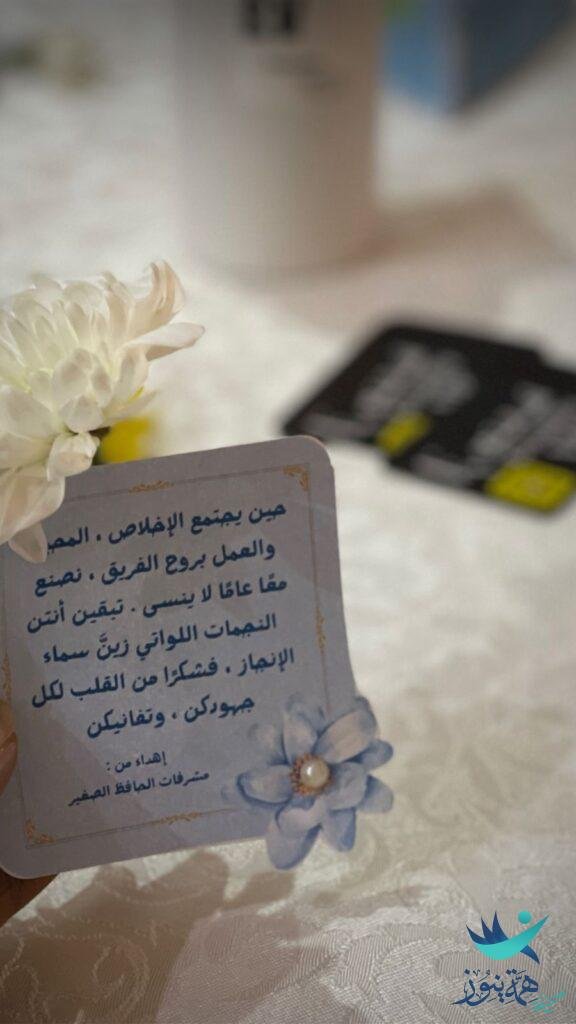 حين يجتمع الإخلاص ،
والعمل بروح الفريق ، نصنع
معًا عامًا لا ينسى . تبقين أنتن
النجمات اللواتي زينَّ سماء
الإنجاز ، فشكرًا من القلب لكل
جهودكن ، وتفانيكن
إهداء من :
مشرفات الحافظ الصغير